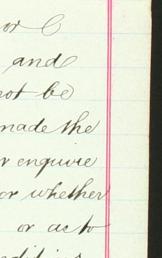 or C
and
not be
made the
r enquire
or whether
or as to